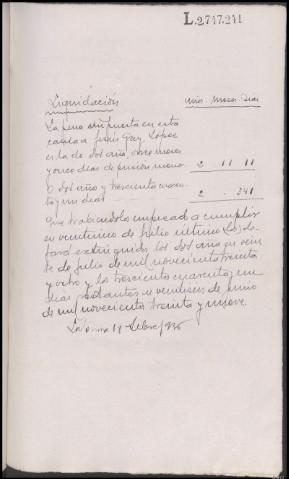 L.2747.241
Liquidación años. Meses. Dias
La pena impuesta en esta
causa a Jesús Gay López
es la de dos años, once meses
y once dias de prisión menor 2 11 11
O dos años y trescientos cuaren-
ta y un dias 2 341
Que habiendola empezado a cumplir
en veintiuno de Julio último los de-
jará extinguidos los dos años en vein-
te de julio de mil novecientos treinta
y ocho y los trescientos cuarenta y un
dias restantes en veintiseis de junio
de mil novecientos treinta y nueve.
La 19 Octubre/936